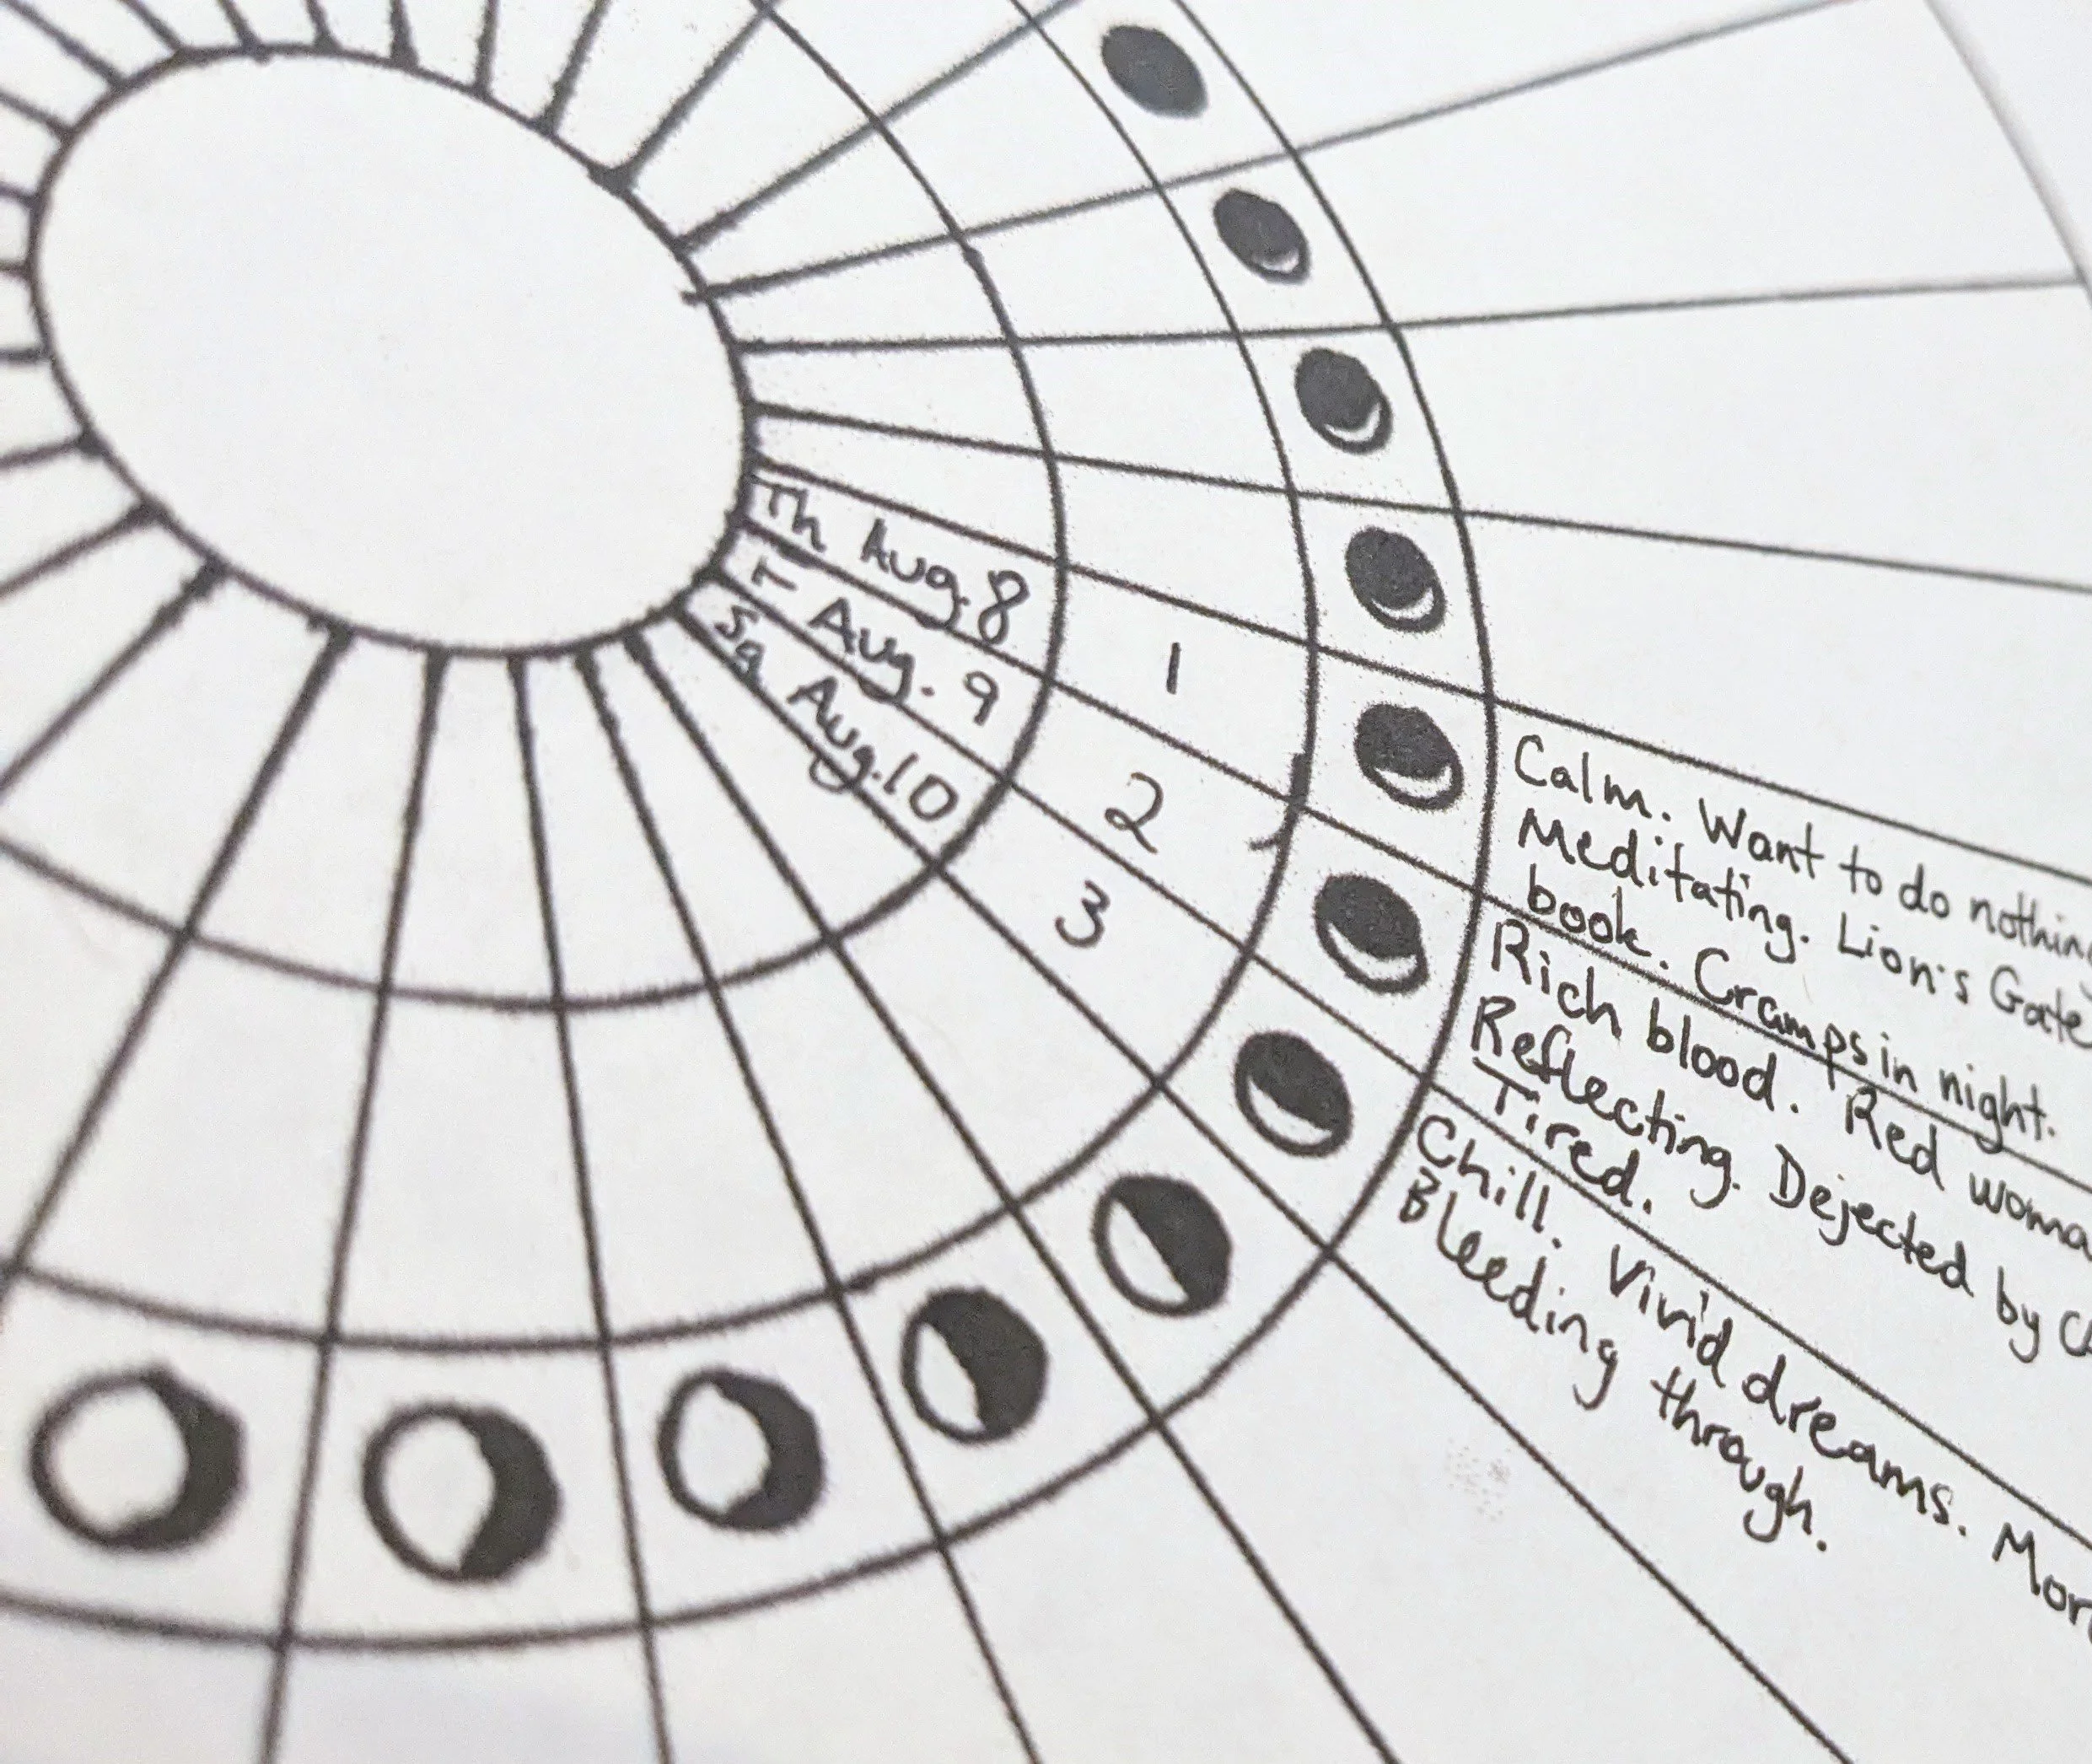 Th Aug. 8
1
Calm. Want to do nothing
Meditating. Lion's Gate
book. Cramps in night.
F Aug. 9
2
Rich blood. Red
Reflecting. Dejected by
Tired.
Sa Aug. 10
3
Chill. Vivid dreams.
Bleeding through.